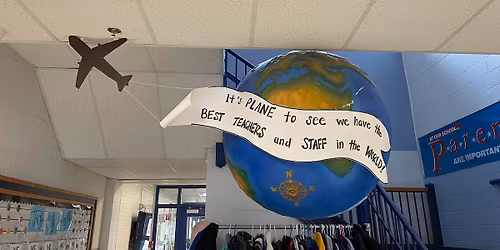 It's PLANE to see we have the
BEST TEACHERS and STAFF in the WORLD!
N
W E
AT OUR SCHOOL...
Paren
ARE IMPORTANT